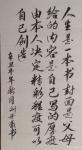 人生是一本书封面是父母
给的内容是自己写的厚度
由本人决定精彩程度可以
自己创造